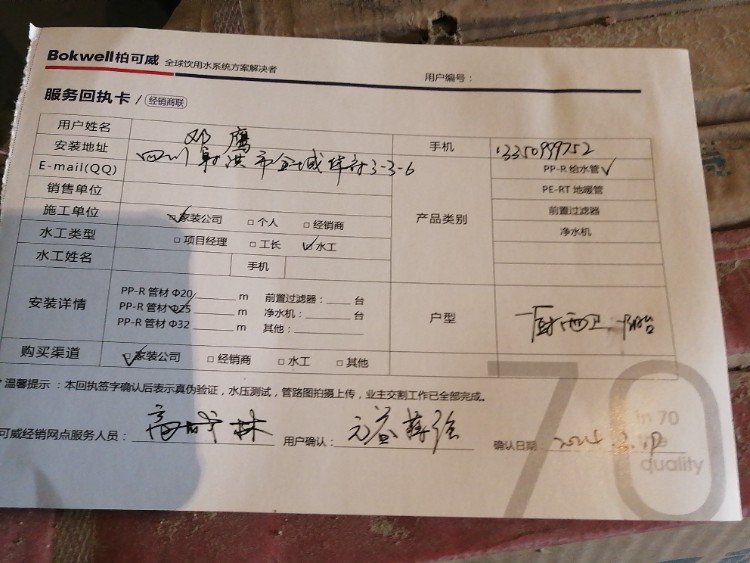 Bokwell柏可威 全球饮用水系统方案解决者
用户编号：
服务回执卡 / 经销商联
用户姓名 邓鹰
安装地址 四川射洪市 手机 13350999752
E-mail(QQ) 3-3-6
产品类别 PP-R 给水管 ✓
PE-RT 地暖管
前置过滤器
净水机
销售单位
施工单位 ☑家装公司 □个人 □经销商
水工类型 □项目经理 □工长 ☑水工
水工姓名 手机
安装详情 PP-R 管材 Φ20 ____ m 前置过滤器：____ 台
PP-R 管材 Φ25 ____ m 净水机：____ 台
PP-R 管材 Φ32 ____ m 其他：____
户型 一厨两卫一阳台
购买渠道 ☑家装公司 □经销商 □水工 □其他
* 温馨提示：本回执签字确认后表示真伪验证，水压测试，管路图拍摄上传，业主交割工作已全部完成。
可威经销网点服务人员： 高成林 用户确认： 确认日期：
70
in 70
quality